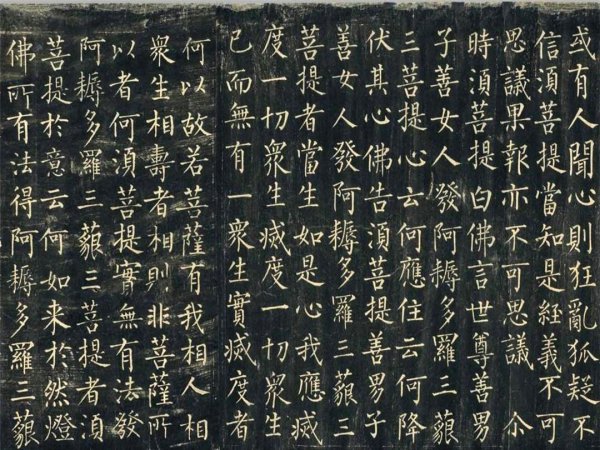 或有人聞心則狂亂狐疑不
信須菩提當知是經義不可
思議果報亦不可思議 尒
時須菩提白佛言世尊善男
子善女人發阿耨多羅三藐
三菩提心云何應住云何降
伏其心佛告須菩提善男子
善女人發阿耨多羅三藐三
菩提者當生如是心我應滅
度一切衆生滅度一切衆生
已而無有一衆生實滅度者
何以故若菩薩有我相人相
衆生相壽者相則非菩薩所
以者何須菩提實無有法發
阿耨多羅三藐三菩提者須
菩提於意云何如来於然燈
佛所有法得阿耨多羅三藐